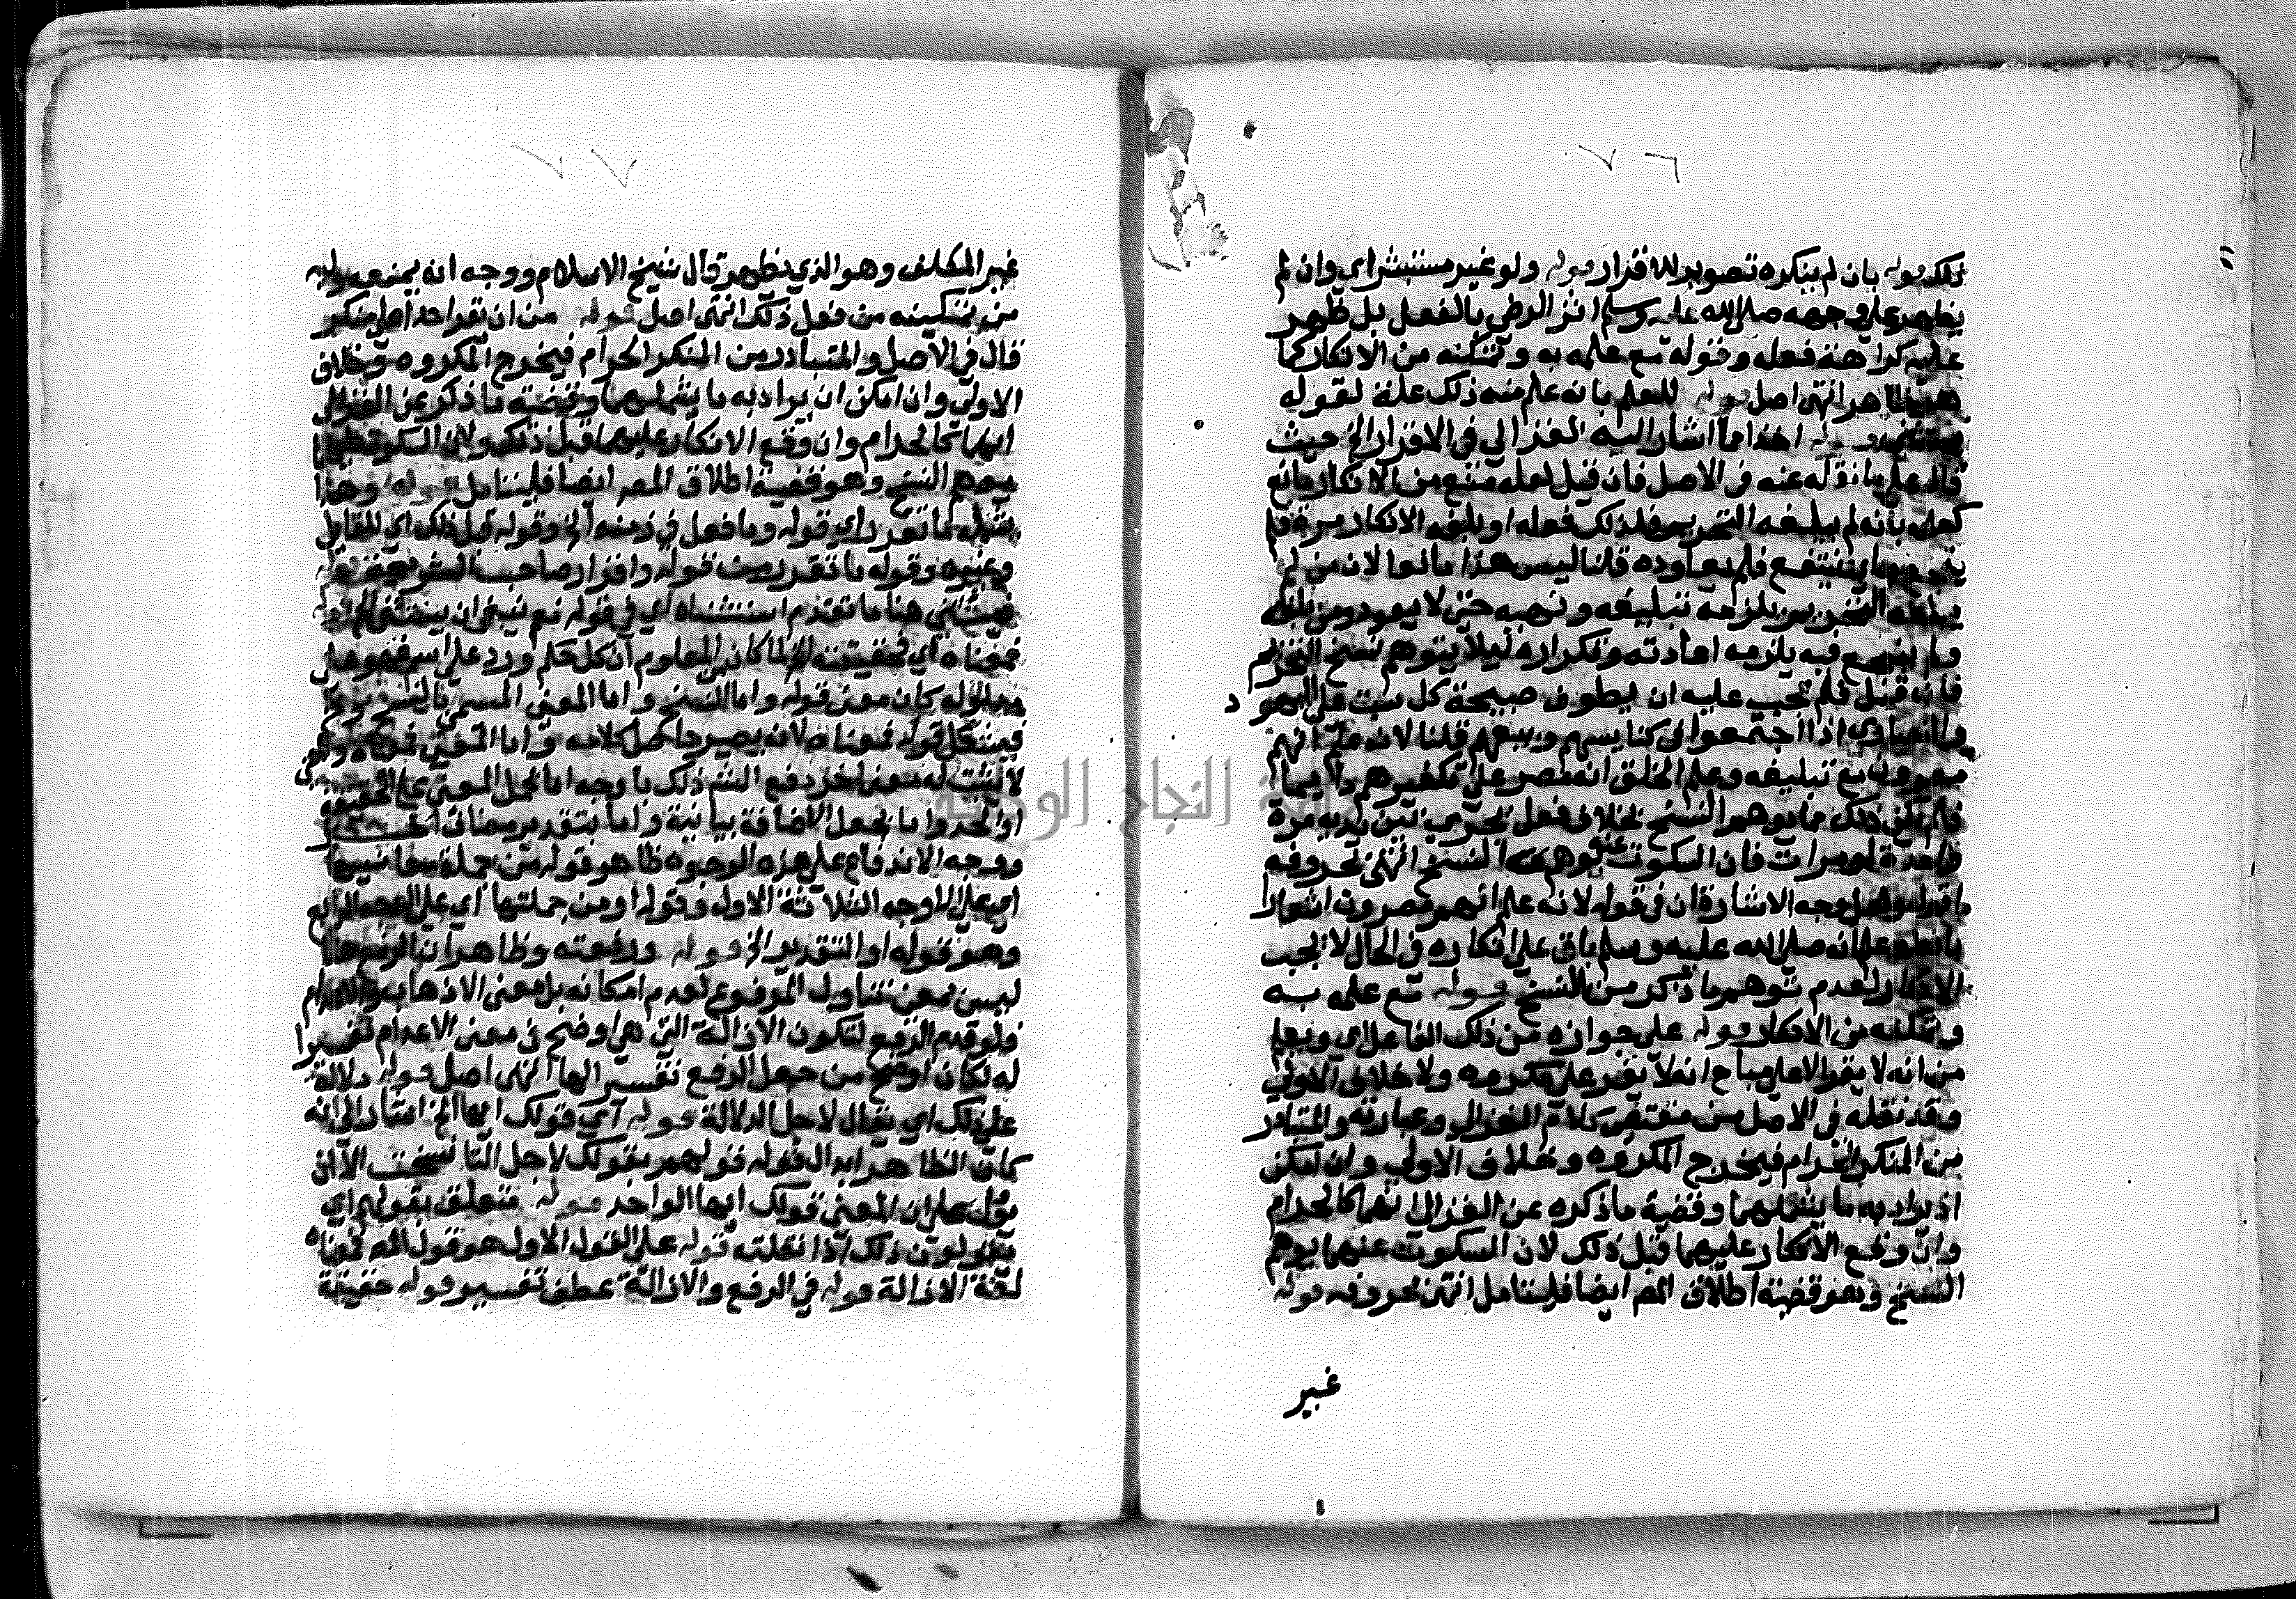 ٧٦
ذلك قوله بان لم ينكره تصوير للاقرار قوله ولو غير مستبشر اي وان لم
يظهر على وجهه صلى الله عليه وسلم اثر الرضى بالفعل بل ظهر
عليه كراهة فعله وقوله مع علمه به وتمكنه من الانكار كما
هو ظاهر انتهى اصل قوله للعلم بانه علم منه ذلك علة لقوله
قوله اخذا مما اشار اليه الغزالي في الاقرار الخ حيث
قال على ما نقله عنه في الاصل فان قيل لعله منع من الانكار مانع
كعلمه بانه لم يبلغه التحريم فلذلك فعله او بلغه الانكار مرة فلم
ينتفع فلم يعاوده قلنا ليس هذا مانعا لان من لم
يبلغه التحريم يلزمه تبليغه ونهيه حتى لا يعود ومن بلغه
ولم ينتفع فيه يلزمه اعادته وتكراره ليلا يتوهم نسخ التحريم
فان قيل فلم لم يجب عليه ان يطوف صبيحة كل سبت على اليهود
والنصارى اذا اجتمعوا في كنايسهم وبيعهم قلنا لانه علم انهم
مصرون مع تبليغه وعلم الخلق انه مصر على تكفيرهم دايما
فلم يكن ذلك مما يوهم النسخ بخلاف فعل يجرى بين يديه مرة
واحدة او مرات فان السكوت عنه يوهم النسخ انتهى بحروفه
اقول ولعل وجه الاشارة ان في قوله لانه علم انهم مصرون اشعارا
بانه صلى الله عليه وسلم باق على انكاره في الحال لا يجب
الانكار لعدم توهم ما ذكر من النسخ قوله مع علمه به
وتمكنه من الانكار قوله على جوازه من ذلك الفاعل اي ويعلم
من انه لا يقر الا على مباح انه لا يقر على مكروه ولا خلاف الاولى
وقد نقله في الاصل من مقتضى كلام الغزالي وعبارته والمتبادر
من المنكر الحرام فيخرج المكروه وخلاف الاولى وان امكن
ان يراد به ما يشملهما وقضية ما ذكره عن الغزالي انهما كالحرام
وان وقع الانكار عليهما قبل ذلك لان السكوت عنهما يوهم
النسخ وهو قضية اطلاق المصر ايضا فليتامل انتهى بحروفه قوله
غير
٧٧
غير المكلف وهو الذي يظهر قال شيخ الاسلام ووجه انه يمنع وليه
من تمكينه من فعل ذلك انتهى اصل قوله من ان تقر احدا على منكر
قال في الاصل والمتبادر من المنكر الحرام فيخرج المكروه وخلاف
الاولى وان امكن ان يراد به ما يشملهما وقضية ما ذكر عن الغزالي
انهما كالحرام وان وقع الانكار عليهما قبل ذلك ولان السكوت عنهما
يوهم النسخ وهو قضية اطلاق المصر ايضا فليتامل قوله وهذا
يشمل ما تقدم اي قوله وما فعل في زمنه الخ وقوله قبل ذلك اي للفاعل
وغيره وقوله ما تقدم من قوله واقرار صاحب الشريعة
فيستثنى هنا ما تقدم استثناه اي في قوله نعم ينبغي ان يستثنى
فمعناه اي حقيقته لما كان المعلوم ان كل حكم ورد على اسم فهو على
مدلوله كان معنى قوله واما النسخ واما المعنى المسمى بالنسخ
فيشكل قوله فمعناه لانه يصير حاصل كلامه واما المعنى فمعناه
لا يثبت له معنى اخر دفع الش ذلك باوجه اما بحمل المعنى على الحقيقة
او الحد واما بجعل الاضافة بيانية واما بتقدير مضاف
ووجه الاندفاع على هذه الوجوه ظاهر قوله من جملة معانيها
اي على الاوجه الثلاثة الاول وقوله او من جملتها اي على الوجه الرابع
وهو قوله او التقدير الخ قوله ورفعته وظاهر ان الرفع هنا
ليس بمعنى تناول المرفوع لعدم امكانه بل معنى الاذهاب والاعدام
فلو قدم الرفع لتكون الازالة التي هي اوضح في معنى الاعدام تفسيرا
له لكان اوضح من جعل الرفع تفسيرا لها انتهى اصل قوله دلالة
على ذلك اي يقال لاجل الدلالة قوله اي قولك ايها الخ اشار الى انه
كان الظاهر ابدال قوله قولهم بقولك لاجل التا نسخت الا ان
يؤل على ان المعنى قولك ايها الواحد قوله متعلق بقولهم اي
يقولون ذلك اذا نقلته قوله على القول الاول هو قول المصر فمعناه
لغة الازالة قوله في الرفع والازالة عطف تفسير قوله حقيقة